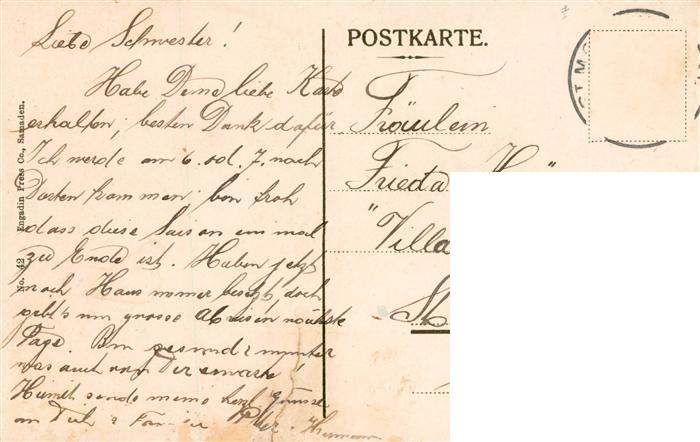 Liebe Schwester!
Habe Deine liebe Karte
erhalten, besten Dank dafür
Ich werde am 6. od. 7. nach
Dorten kommen, bin froh
dass diese Saison einmal
zu Ende ist. Haben jetzt
noch Haus immer besetzt doch
geht's um grosse Abreisen nächste
Tage. Bin gesund & munter
was auch von Dir erwarte!
Hiemit sende meine herzl. Grüsse
an Dich & Familie
Hermann
No. 42 Engadin Press Co., Samaden.
POSTKARTE.
ST. MO
Fräulein
Frieda
"Villa
St.